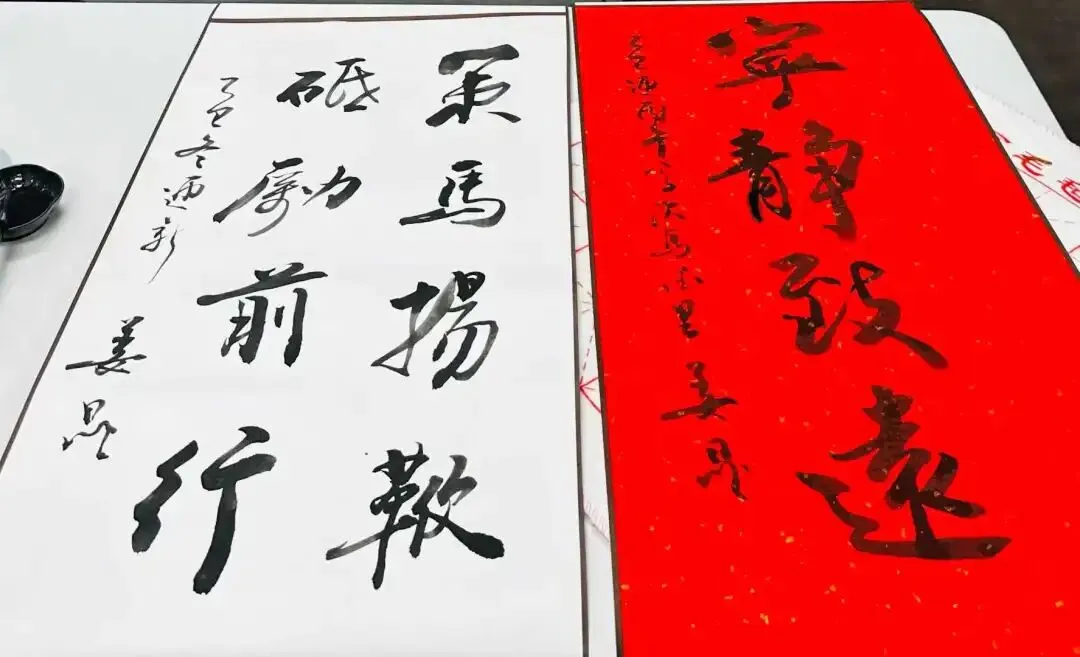 寧靜致遠
乙巳迎丙午写
姜昆
策馬揚鞭
砥勵前行
乙巳冬迎新
姜昆